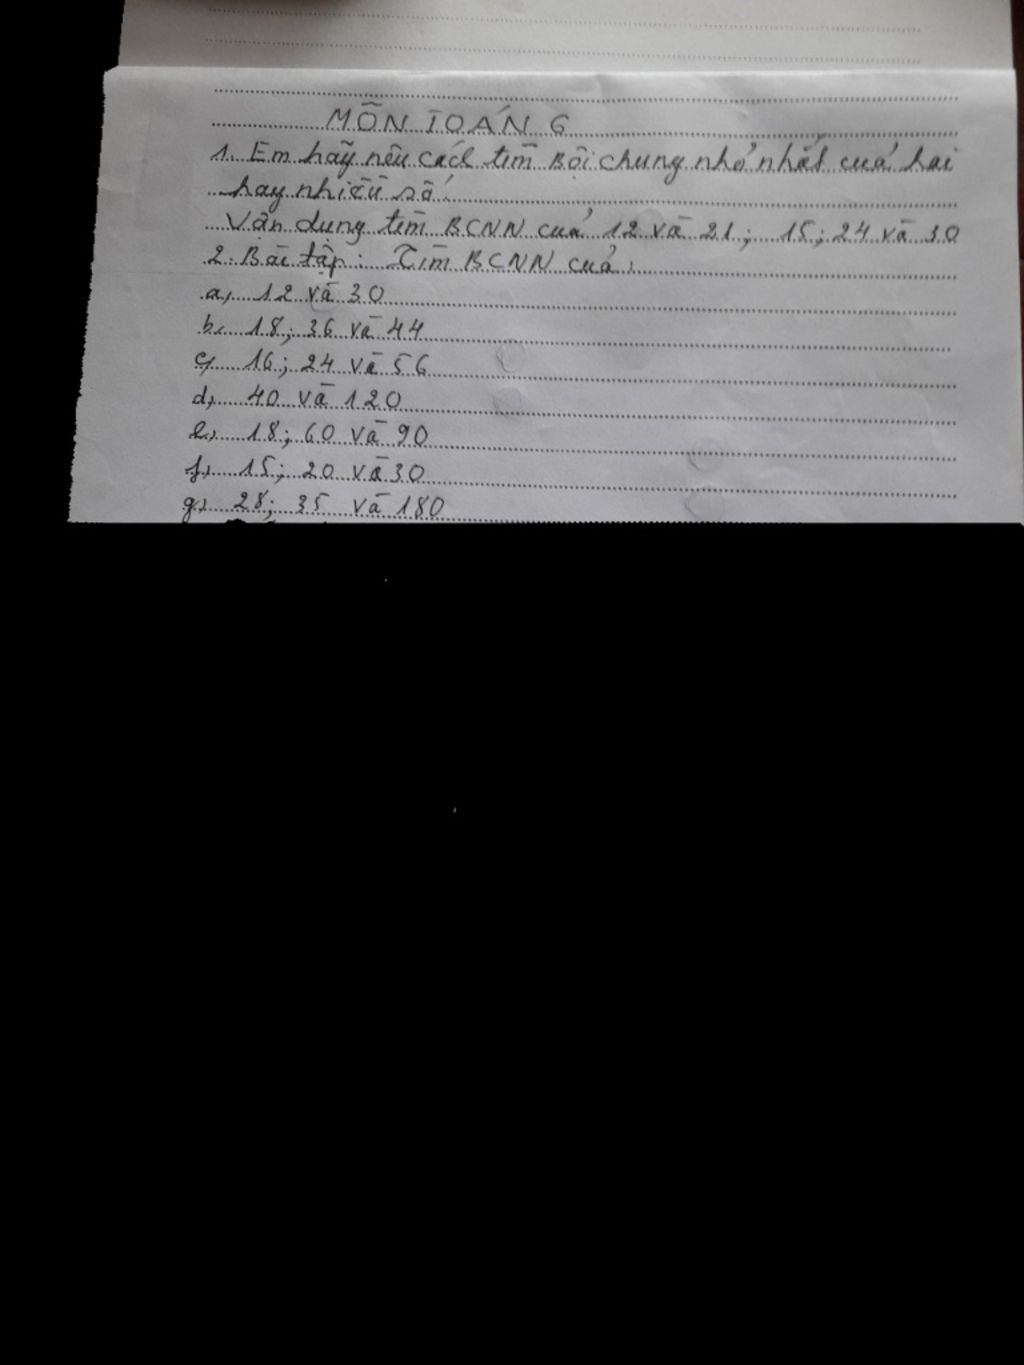 MÔN TOÁN 6
1. Em hãy nêu cách tìm Bội chung nhỏ nhất của hai
hay nhiều số.
Vận dụng tìm BCNN của 12 và 21; 15; 24 và 30
2. Bài tập: Tìm BCNN của:
a, 12 và 30
b, 18; 36 và 44
c, 16; 24 và 56
d, 40 và 120
e, 18; 60 và 90
f, 15; 20 và 30
g, 28; 35 và 180